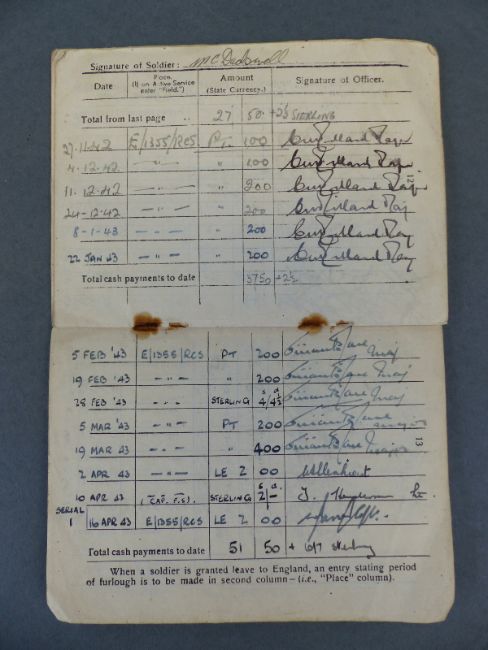 Signature of Soldier:
Date Place. (If on Active Service enter "Field.") Amount (State Currency.) Signature of Officer.
Total from last page .. 27 50 + 2/5 STERLING
27-11-42 E/1355/RCS PT. 100
4-12-42 — " — " 100
11-12-42 — " — " 200
24-12-42 — " — " 200
8-1-43 — " — " 200
22 JAN 43 — " — " 200
12
Total cash payments to date 3750 + 2/5
5 FEB '43 E/1355/RCS PT 200 Maj
19 FEB '43 — " — " 200 Maj
28 FEB '43 — " — STERLING s d 4/4½ Maj
5 MAR '43 — " — PT 200 Major
19 MAR 43 — " — " 400 Major
13
2 APR 43 — " — LE 2 00
10 APR 43 (CAP. F.S.) STERLING s d 2/-
SERIAL 1 16 APR 43 E/1355/RCS LE 2 00
Total cash payments to date 51 50 + 6/7 sterling
When a soldier is granted leave to England, an entry stating period
of furlough is to be made in second column—(i.e., "Place" column).